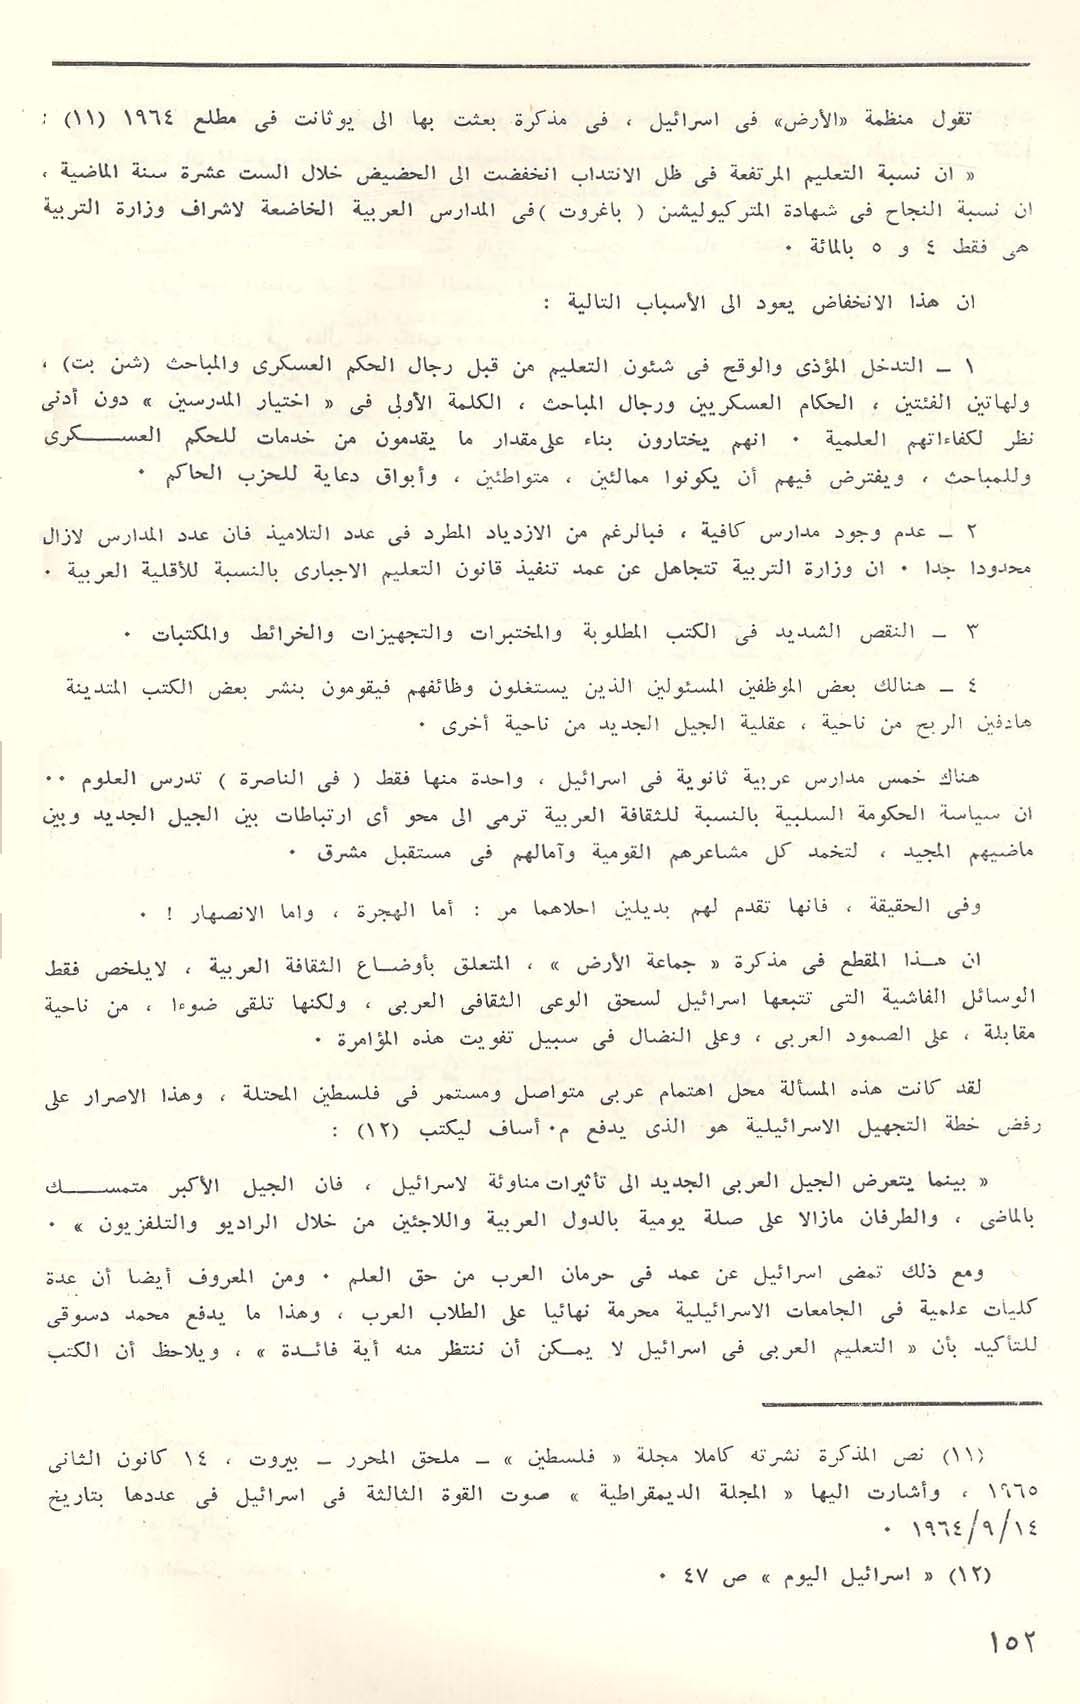 تقول منظمة «الأرض» فى اسرائيل ، فى مذكرة بعثت بها الى يوثانت فى مطلع ١٩٦٤ (١١) :
« ان نسبة التعليم المرتفعة فى ظل الانتداب انخفضت الى الحضيض خلال الست عشرة سنة الماضية ،
ان نسبة النجاح فى شهادة المتركيوليشن ( باغروت )فى المدارس العربية الخاضعة لاشراف وزارة التربية
هى فقط ٤ و ٥ بالمائة ٠
ان هذا الانخفاض يعود الى الأسباب التالية :
١ ــ التدخل المؤذى والوقح فى شئون التعليم من قبل رجال الحكم العسكرى والمباحث (شن بت) ،
ولهاتين الفئتين ، الحكام العسكريين ورجال المباحث ، الكلمة الأولى فى « اختيار المدرسين » دون أدنى
نظر لكفاءاتهم العلمية ٠ انهم يختارون بناء على مقدار ما يقدمون من خدمات للحكم العســـكرى
وللمباحث ، ويفترض فيهم أن يكونوا ممالئين ، متواطئين ، وأبواق دعاية للحزب الحاكم ٠
٢ ــ عدم وجود مدارس كافية ، فبالرغم من الازدياد المطرد فى عدد التلاميذ فان عدد المدارس لازال
محدودا جدا ٠ ان وزارة التربية تتجاهل عن عمد تنفيذ قانون التعليم الاجبارى بالنسبة للأقلية العربية ٠
٣ ــ النقص الشديد فى الكتب المطلوبة والمختبرات والتجهيزات والخرائط والمكتبات ٠
٤ ــ هنالك بعض الموظفين المسئولين الذين يستغلون وظائفهم فيقومون بنشر بعض الكتب المتدينة
هادفين الربح من ناحية ، عقلية الجيل الجديد من ناحية أخرى ٠
هناك خمس مدارس عربية ثانوية فى اسرائيل ، واحدة منها فقط ( فى الناصرة ) تدرس العلوم ٠٠
ان سياسة الحكومة السلبية بالنسبة للثقافة العربية ترمى الى محو أى ارتباطات بين الجيل الجديد وبين
ماضيهم المجيد ، لتخمد كل مشاعرهم القومية وآمالهم فى مستقبل مشرق ٠
وفى الحقيقة ، فانها تقدم لهم بديلين احلاهما مر : أما الهجرة ، واما الانصهار ! ٠
ان هــذا المقطع فى مذكرة « جماعة الأرض » ، المتعلق بأوضــاع الثقافة العربية ، لايلخص فقط
الوسائل الفاشية التى تتبعها اسرائيل لسحق الوعى الثقافى العربى ، ولكنها تلقى ضوءا ، من ناحية
مقابلة ، على الصمود العربى ، وعلى النضال فى سبيل تفويت هذه المؤامرة ٠
لقد كانت هذه المسألة محل اهتمام عربى متواصل ومستمر فى فلسطين المحتلة ، وهذا الاصرار على
رفض خطة التجهيل الاسرائيلية هو الذى يدفع م٠ أساف ليكتب (١٢) :
« بينما يتعرض الجيل العربى الجديد الى تأثيرات مناوئة لاسرائيل ، فان الجيل الأكبر متمســـك
بالماضى ، والطرفان مازالا على صلة يومية بالدول العربية واللاجئين من خلال الراديو والتلفزيون » ٠
ومع ذلك تمضى اسرائيل عن عمد فى حرمان العرب من حق العلم ٠ ومن المعروف أيضا أن عدة
كليات علمية فى الجامعات الاسرائيلية محرمة نهائيا على الطلاب العرب ، وهذا ما يدفع محمد دسوقى
للتأكيد بأن « التعليم العربى فى اسرائيل لا يمــكن أن ننتظر منه أية فائــدة » ، ويلاحظ أن الكتب
(١١) نص المذكرة نشرته كاملا مجلة « فلسطين » ــ ملحق المحرر ــ بيروت ، ١٤ كانون الثانى
١٩٦٥ ، وأشارت اليها « المجلة الديمقراطية » صوت القوة الثالثة فى اسرائيل فى عددها بتاريخ
١٩٦٤/٩/١٤ ٠
(١٢) « اسرائيل اليوم » ص ٤٧ ٠
١٥٢